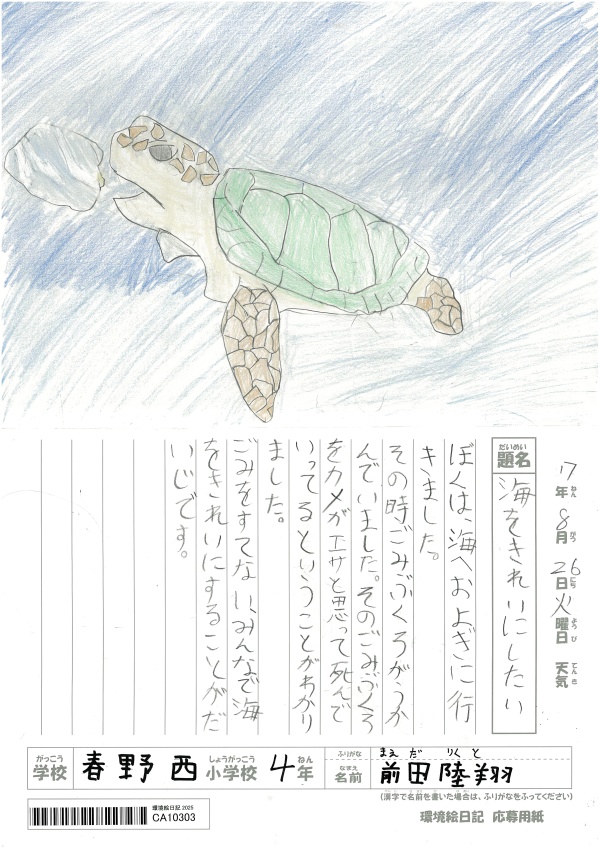 7年 8月 26日 火曜日 天気
ねん がつ にち ようび てんき
だいめい
題名 海をきれいにしたい
ぼくは、海へおよぎに行
きました。
その時ごみぶくろがうか
んでいました。そのごみぶくろ
をカメがエサと思って死んで
いってるということがわかり
ました。
ごみをすてない、みんなで海
をきれいにすることがだ
いじです。
がっこう しょうがっこう ねん
学校 春野西 小学校 4年
ふりがな まえ だ りく と
なまえ
名前 前田陸翔
(漢字で名前を書いた場合は、ふりがなをふってください)
環境絵日記 2025
CA10303
環境絵日記 応募用紙